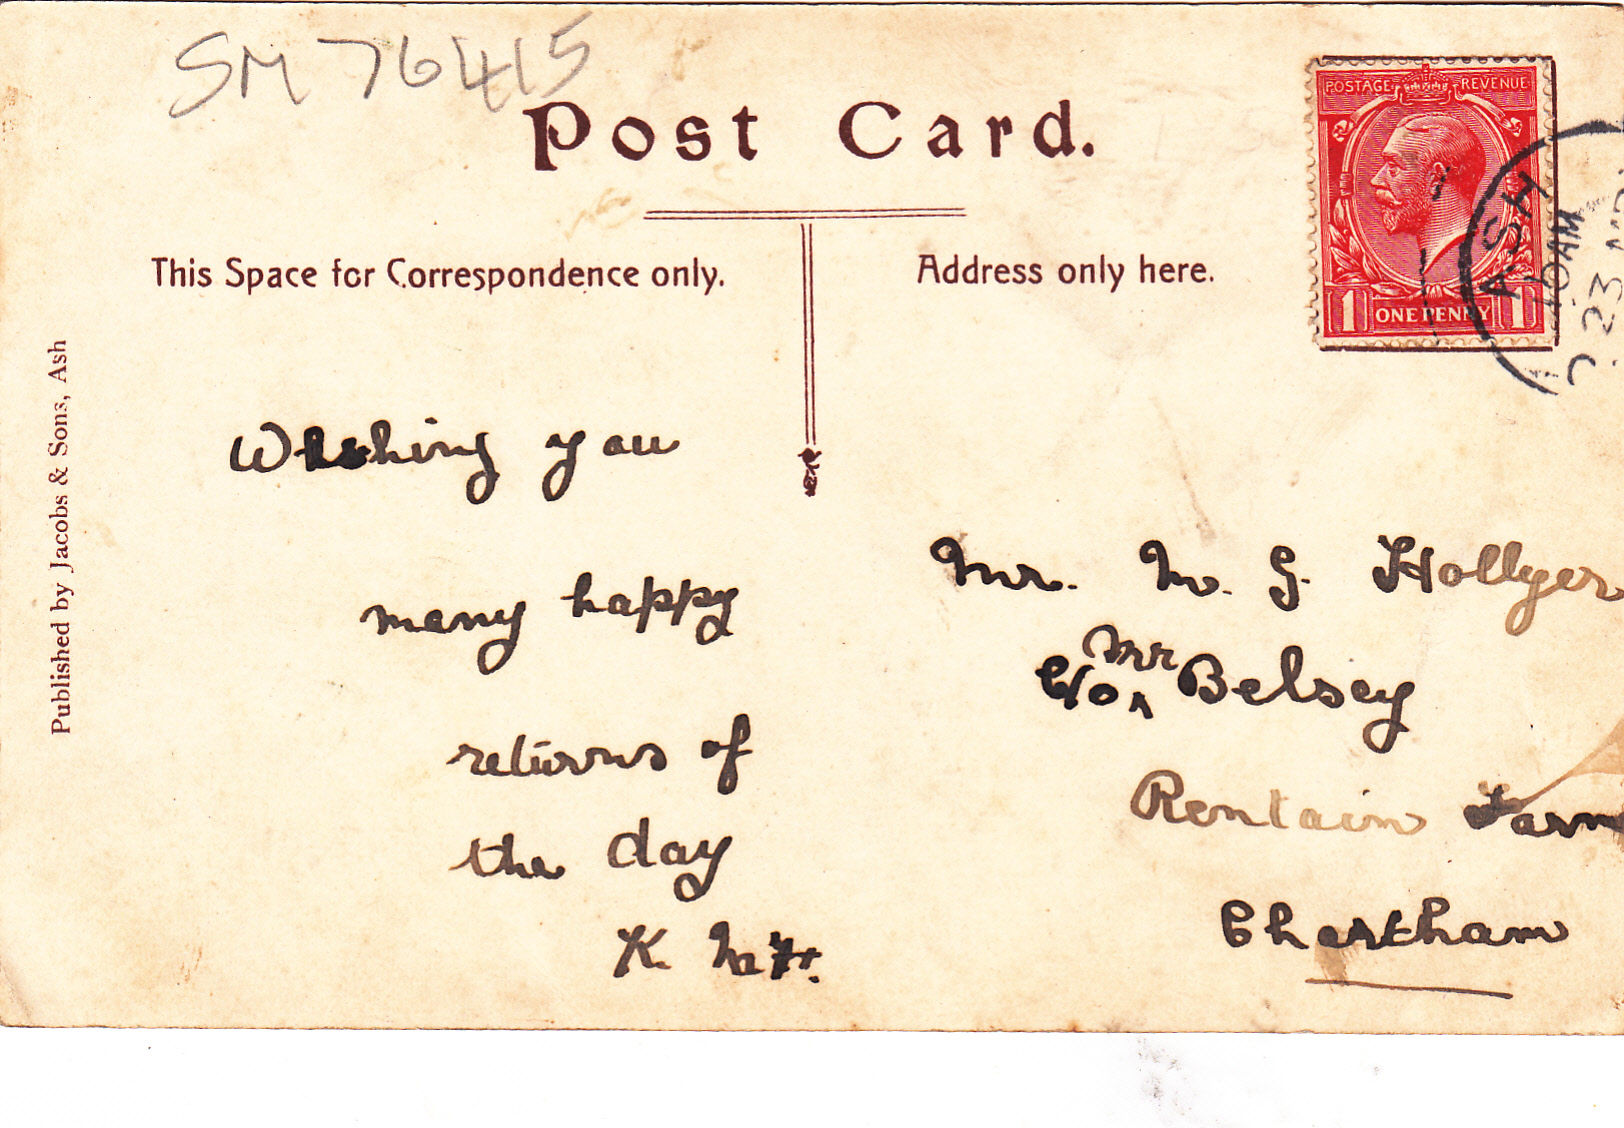 SM 76415
Post Card.
This Space for Correspondence only.
Address only here.
POSTAGE REVENUE
1 ONE PENNY 1
ASH
10 AM
23
Published by Jacobs & Sons, Ash
Wishing you
many happy
returns of
the day
K.
Mr. M. G. Hollyer
C/o Mr Belsey
Rentain Farm
Chartham